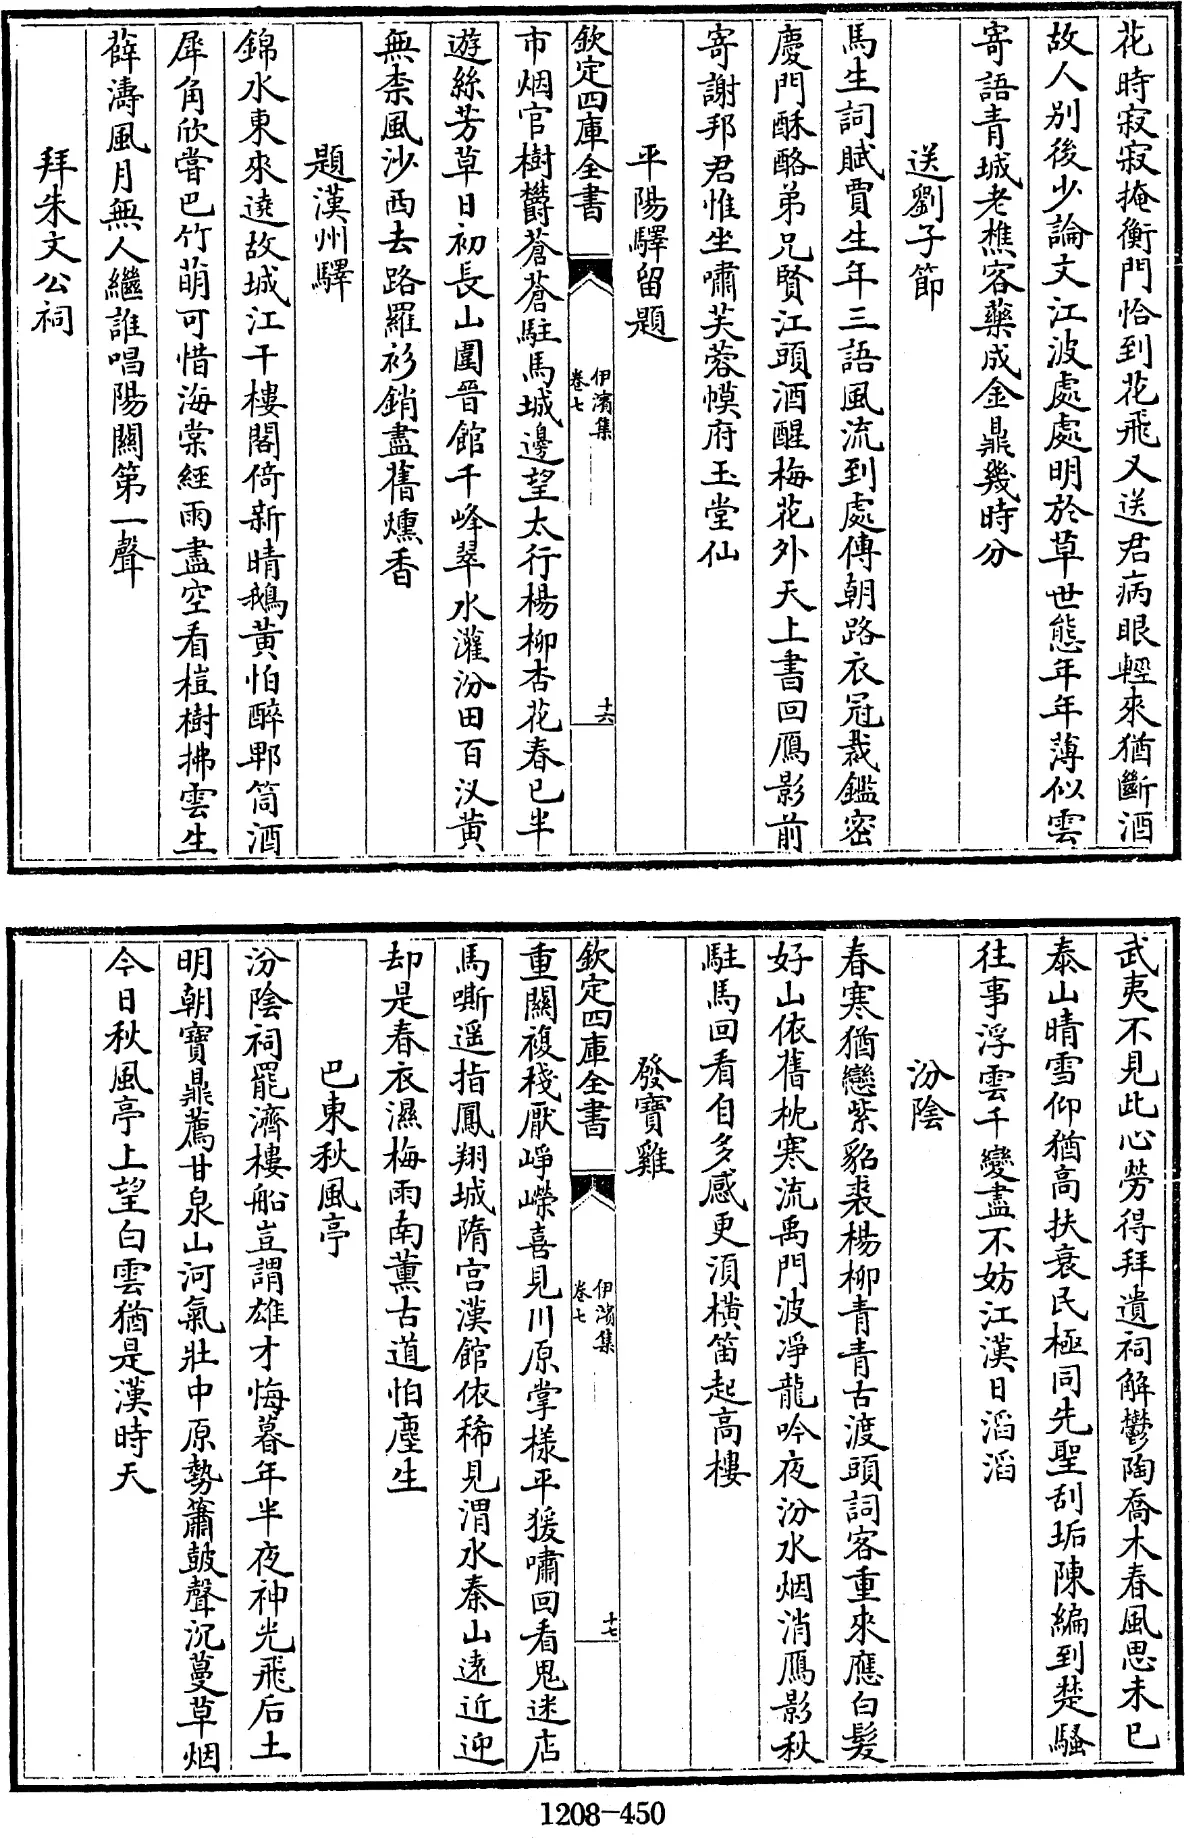 花時寂寂掩衡門恰到花飛又送君病眼輕來猶斷酒
故人別後少論文江波處處明於草世態年年薄似雲
寄語青城老樵客藥成金鼎幾時分
送劉子節
馬生詞賦賈生年三語風流到處傳朝路衣冠裁鑑密
慶門酥酪弟兄賢江頭酒醒梅花外天上書回鴈影前
寄謝邦君惟坐嘯芙蓉幙府玉堂仙
平陽驛留題
欽定四庫全書
伊濱集
卷七
十六
市烟官樹欝蒼蒼駐馬城邊望太行楊柳杏花春已半
遊絲芳草日初長山圍晉館千峰翠水灌汾田百汊黄
無柰風沙西去路羅衫銷盡舊燻香
題漢州驛
錦水東來遶故城江干樓閣倚新晴鵝黄怕醉郫筒酒
犀角欣嘗巴竹萌可惜海棠經雨盡空看榿樹拂雲生
薛濤風月無人繼誰唱陽關第一聲
拜朱文公祠
武夷不見此心勞得拜遺祠解鬱陶喬木春風思未已
泰山晴雪仰猶高扶衰民極同先聖刮垢陳編到楚騷
往事浮雲千變盡不妨江漢日滔滔
汾陰
春寒猶戀紫貂裘楊柳青青古渡頭詞客重來應白髪
好山依舊枕寒流禹門波凈龍吟夜汾水烟消鴈影秋
駐馬回看自多感更須横笛起高樓
發寶雞
欽定四庫全書
伊濱集
卷七
十七
重關複棧厭崢嶸喜見川原掌様平猨嘯回看鬼迷店
馬嘶遥指鳳翔城隋宫漢館依稀見渭水秦山逺近迎
却是春衣濕梅雨南薰古道怕塵生
巴東秋風亭
汾陰祠罷濟樓船豈謂雄才悔暮年半夜神光飛后土
明朝寶鼎薦甘泉山河氣壯中原勢簫鼓聲沉蔓草烟
今日秋風亭上望白雲猶是漢時天
1208-450